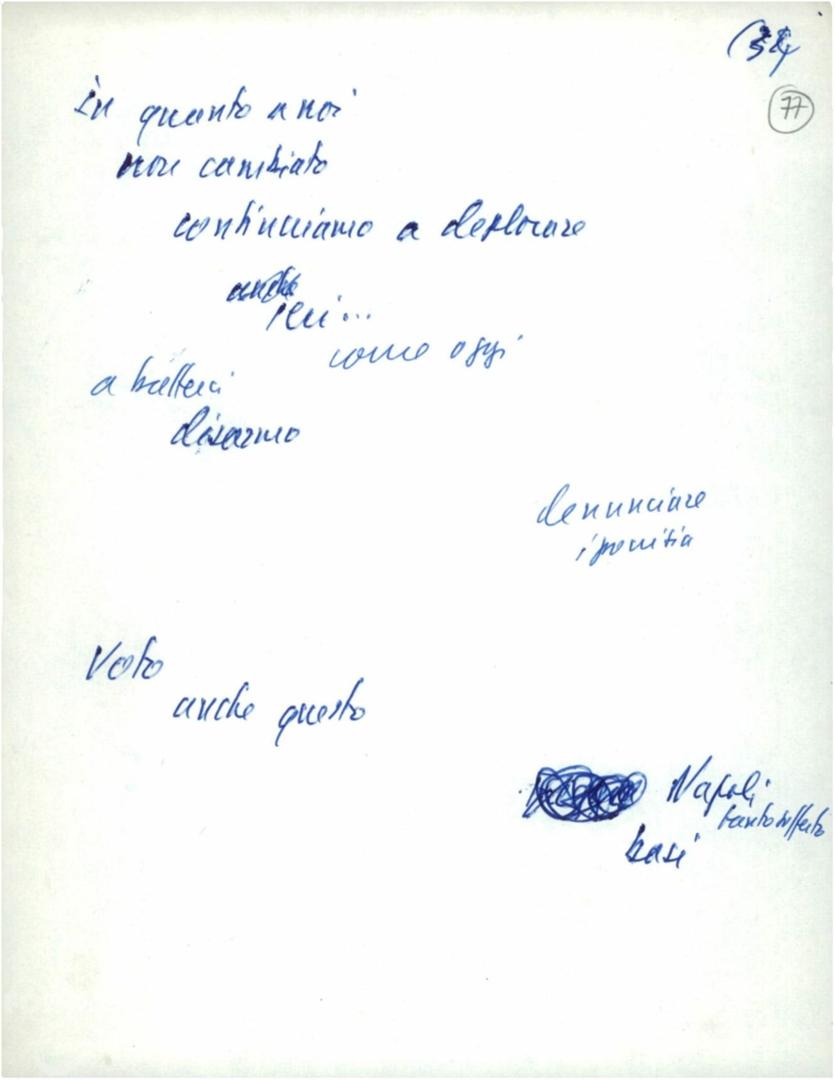 (34
77
in quanto a noi
non cambiato
continuiamo a deplorare
anche
ieri...
come oggi
a batterci
disarmo
denunciare
ipocrisia
Voto
anche questo
Napoli
tanto sofferto
basi